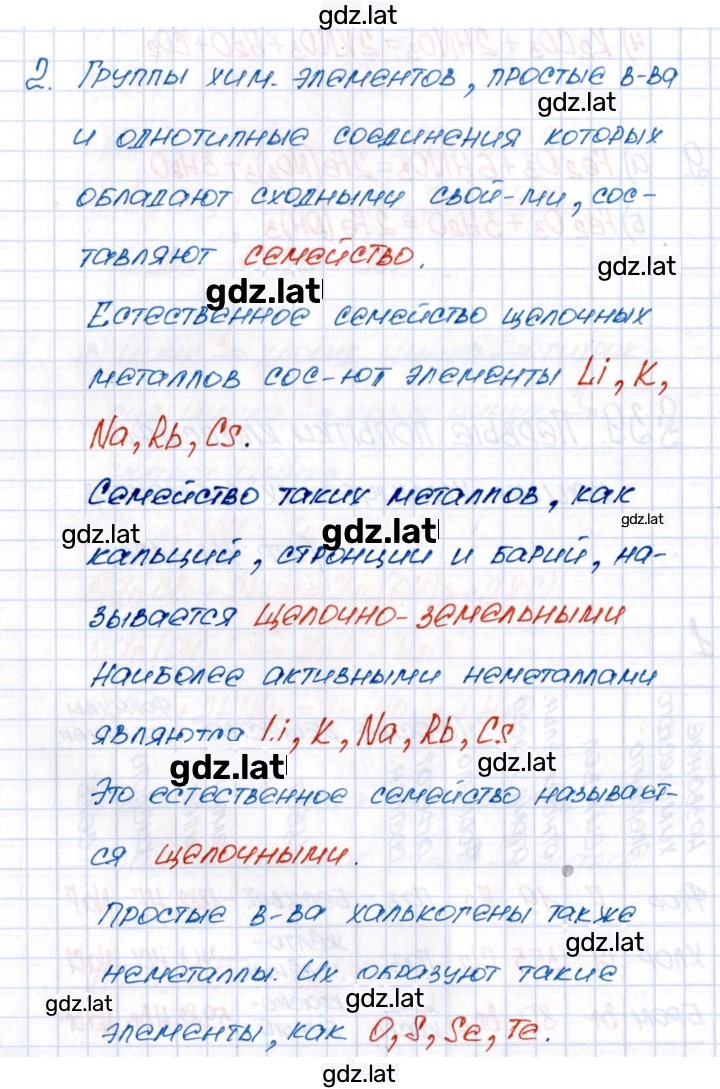 gdz.lat
2. Группы хим. элементов, простые в-ва
gdz.lat
и однотипные соединения которых
обладают сходными свой-ми, сос-
тавляют семейство.
gdz.lat
gdz.lat
Естественное семейство щелочных
металлов сос-ют элементы Li, K,
Na, Rb, Cs.
Семейство таких металлов, как
gdz.lat
gdz.lat
gdz.lat
кальций, стронций и барий, на-
зывается щелочно-земельными
Наиболее активными неметаллами
являются Li, K, Na, Rb, Cs
gdz.lat
gdz.lat
Это естественное семейство называет-
ся щелочными.
Простые в-ва халькогены также
gdz.lat
неметаллы. Их образуют такие
gdz.lat
gdz.lat
элементы, как O, S, Se, Te.
gdz.lat